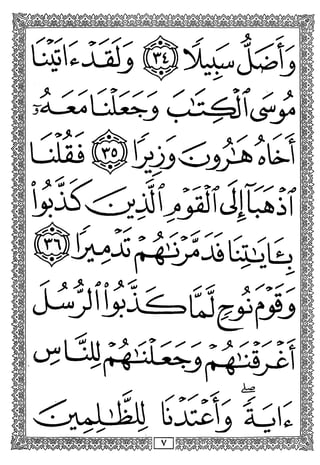 وَأَضَلُّ سَبِيلًا ٣٤ وَلَقَدْ ءَاتَيْنَا
مُوسَى ٱلْكِتَٰبَ وَجَعَلْنَا مَعَهُۥٓ
أَخَاهُ هَٰرُونَ وَزِيرًا ٣٥ فَقُلْنَا
ٱذْهَبَآ إِلَى ٱلْقَوْمِ ٱلَّذِينَ كَذَّبُوا۟
بِـَٔايَٰتِنَا فَدَمَّرْنَٰهُمْ تَدْمِيرًا ٣٦
وَقَوْمَ نُوحٍ لَّمَّا كَذَّبُوا۟ ٱلرُّسُلَ
أَغْرَقْنَٰهُمْ وَجَعَلْنَٰهُمْ لِلنَّاسِ
ءَايَةً ۖ وَأَعْتَدْنَا لِلظَّٰلِمِينَ
٧